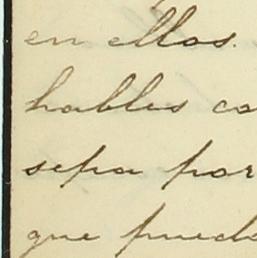 en ellos.
hables co
sepa por
que puede